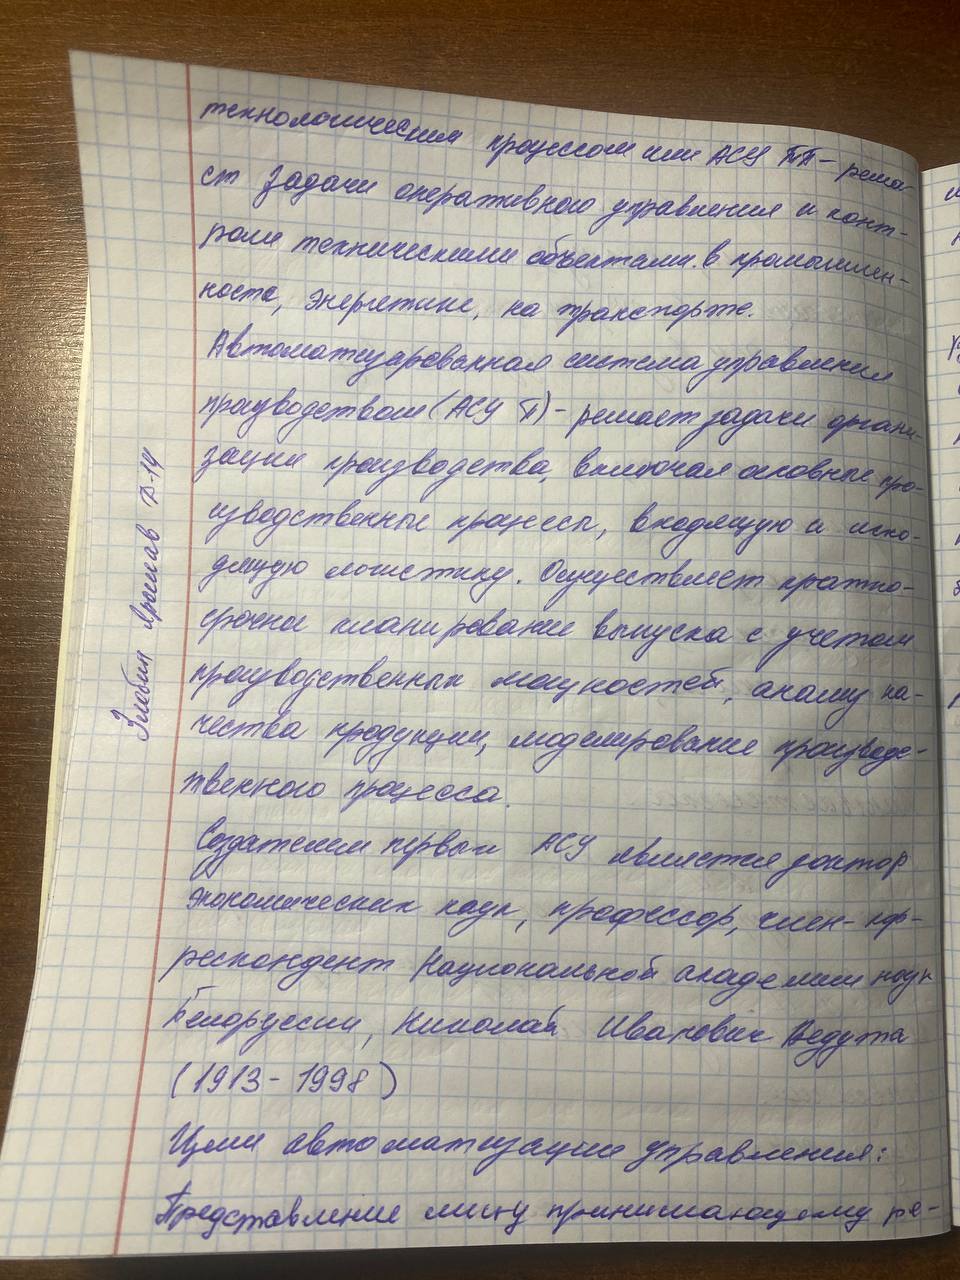 технологическим процессом или АСУ ТП - реша-
ет задачи оперативного управления и конт-
роля техническими объектами в промышлен-
ности, энергетике, на транспорте.
Автоматизированная система управления
производством (АСУ П) - решает задачи органи-
зации производства, включая основные про-
изводственные процессы, входящую и исхо-
дящую логистику. Осуществляет кратко-
срочное планирование выпуска с учетом
производственных мощностей, анализ ка-
чества продукции, моделирование производс-
твенного процесса.
Создателем первых АСУ является доктор
экономических наук, профессор, член-кор-
респондент Национальной академии наук
Белоруссии, Николай Иванович Ведута
(1913 - 1998)
Цели автоматизации управления:
Представление лицу принимающему ре-
Ярослав Р-14